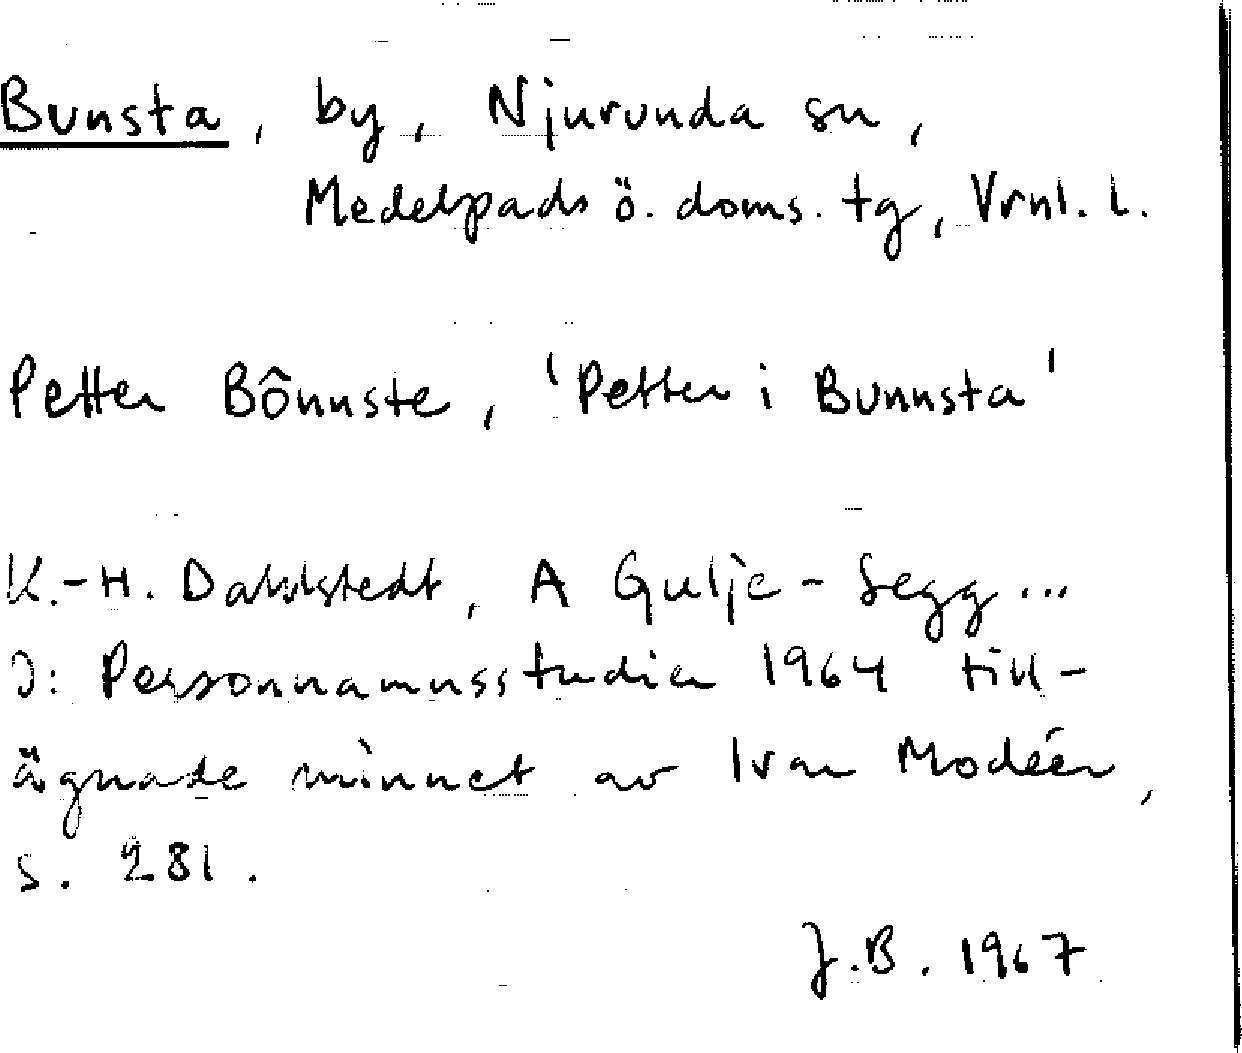 Bunsta, by, Njurunda sn,
Medelpads ö. doms. tg, Vrnl. l.
Petter Bônnste, 'Petter i Bunnsta'
K.-H. Dahlstedt, A Gulje-Segg...
I: Personnamnsstudier 1964 till-
ägnade minnet av Ivar Modéer,
s. 281.
J.B. 1967